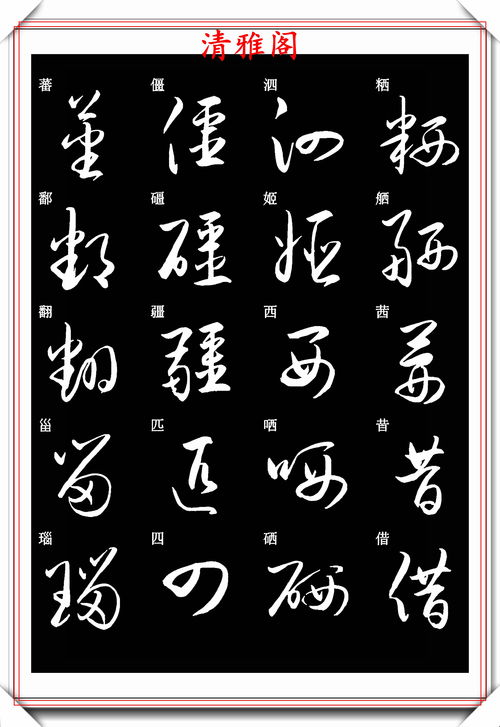 清雅阁
蕃 僵 泗 粞
鄱 礓 姬 舾
翻 疆 西 茜
甾 匹 哂 昔
瑙 四 硒 借